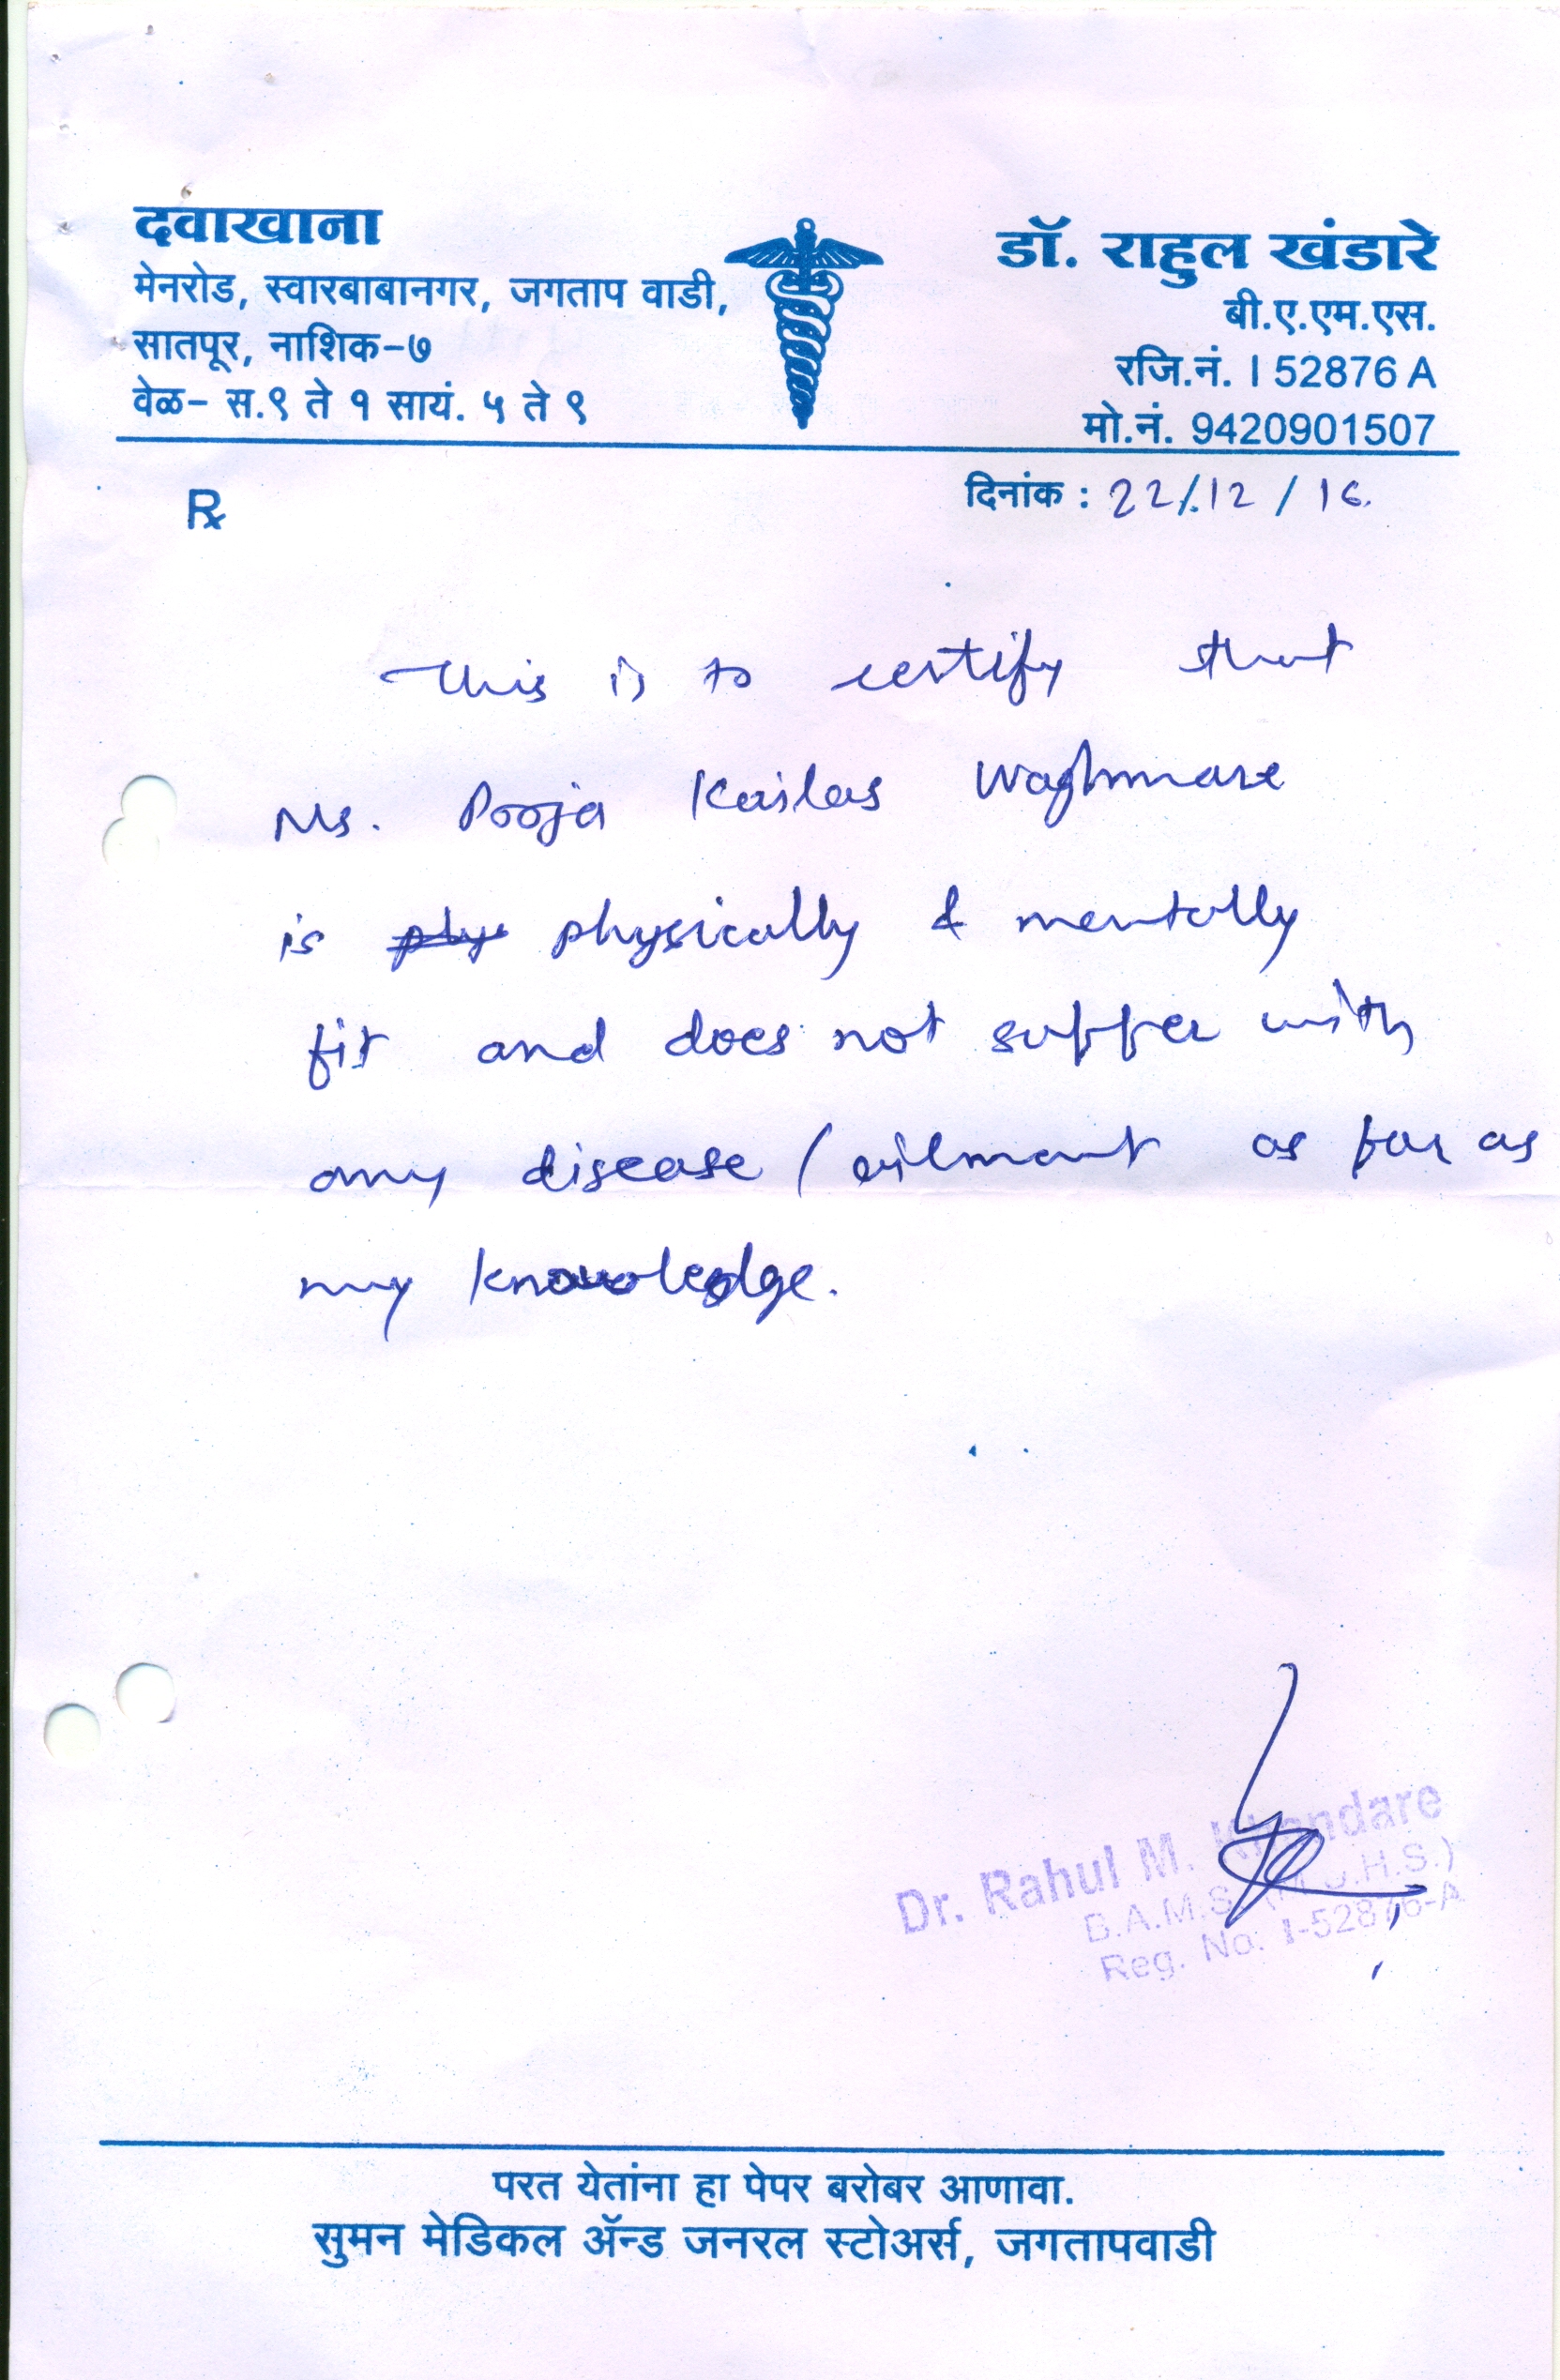 दवाखाना
मेनरोड, स्वारबाबानगर, जगताप वाडी,
सातपूर, नाशिक-७
वेळ- स.९ ते १ सायं. ५ ते ९
डॉ. राहुल खंडारे
बी.ए.एम.एस.
रजि.नं. I 52876 A
मो.नं. 9420901507
दिनांक : 22/12/16.
Rx
This is to certify that
Ms. Pooja Kailas Waghmare
is phys physically & mentally
fit and does not suffer with
any disease / ailment as far as
my knowledge.
Dr. Rahul M. Khandare
B.A.M.S.
Reg. No. I-52876-A
परत येतांना हा पेपर बरोबर आणावा.
सुमन मेडिकल ॲन्ड जनरल स्टोअर्स, जगतापवाडी